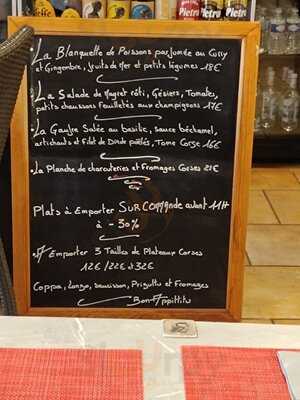 Pietra
La Blanquette de Poissons parfumée au Curry
et Gingembre, fruits de Mer et petits légumes 18€
La Salade de Magret rôti, Gésiers, Tomates,
petits chaussons Feuilletés aux champignons 17€
La Gaufre Salée au basilic, sauce béchamel,
artichauts et Filet de Dinde poêlés, Tome Corse 16€
La Planche de charcuteries et Fromages Corses 21€
Plats à Emporter SUR COMMANDE avant 11H
à -30%
A Emporter 3 Tailles de Plateaux Corses
12€ /22€ et 32€
Coppa, Lonzo, Saucisson, Prisuttu et Fromages
Bon Appittitu